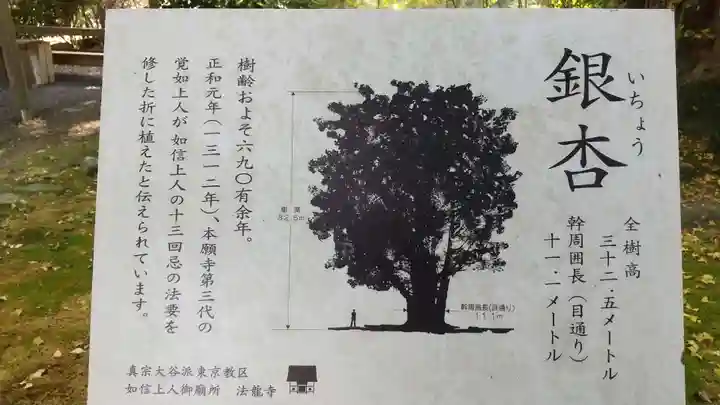 銀杏
いちょう
全樹高
三十二・五メートル
幹周囲長(目通り)
十一・一メートル
樹高
32.5m
幹周囲長(目通り)
11.1m
樹齢およそ六九〇有余年。
正和元年(一三一二年)、本願寺第三代の
覚如上人が如信上人の十三回忌の法要を
修した折に植えたと伝えられています。
真宗大谷派東京教区
如信上人御廟所 法龍寺